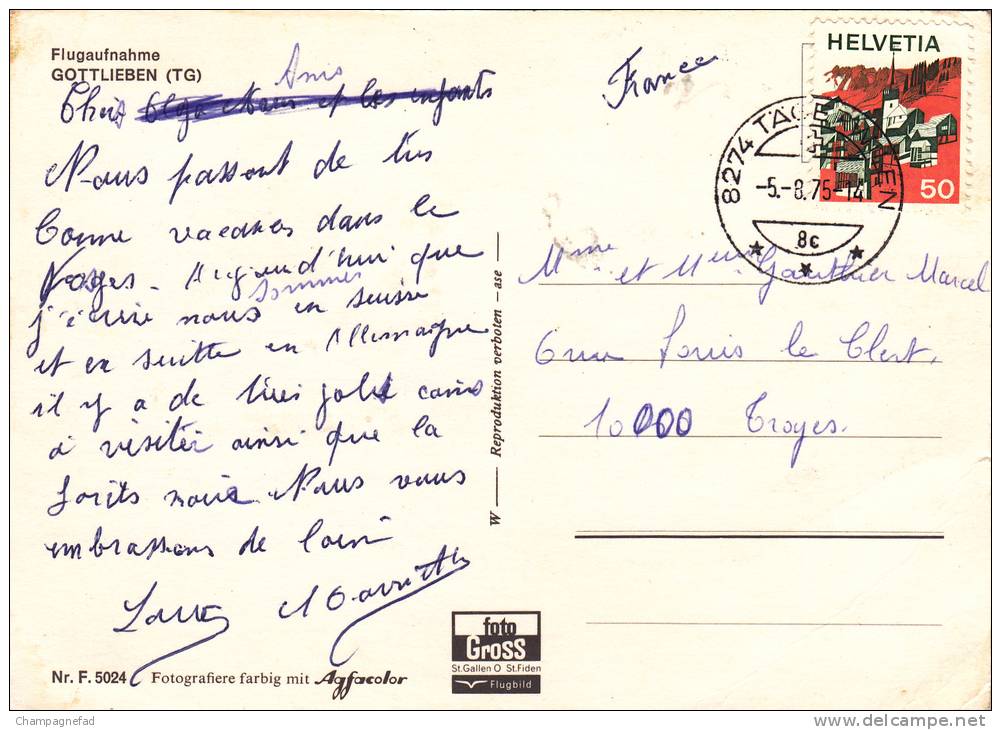 Flugaufnahme
GOTTLIEBEN (TG)
Amis
Chers Olga et les enfants
Nous passont de très
bonne vacances dans le
Vosges. Aujourd'hui que
j'écrire nous sommes en suisse
et en suitte en Allemagne
il y a de très jolie coins
à visiter ainsi que la
forêts noire. Nous vous
embrassons de loin
W — Reproduktion verboten – ase —
France
HELVETIA
50
8274 TÄGERWILEN
-5.-8.75-14
8c
Mme et Mr Gauthier Marcel
6 rue Louis le Clert.
10000 Troyes.
foto
Gross
St.Gallen O St.Fiden
Flugbild
Nr. F. 5024 Fotografiere farbig mit Agfacolor
Champagnefad
delcampe.net